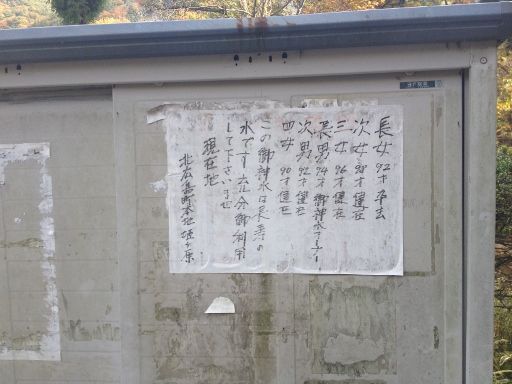 長女 92才 卒去
次女 98才 健在
三女 96才 健在
長男 94才 御神水オーナー
次男 92才 健在
四女 90才 健在
この御神水は長寿の
水です 充分御利用
して下さいませ
現在地
北広島町本地